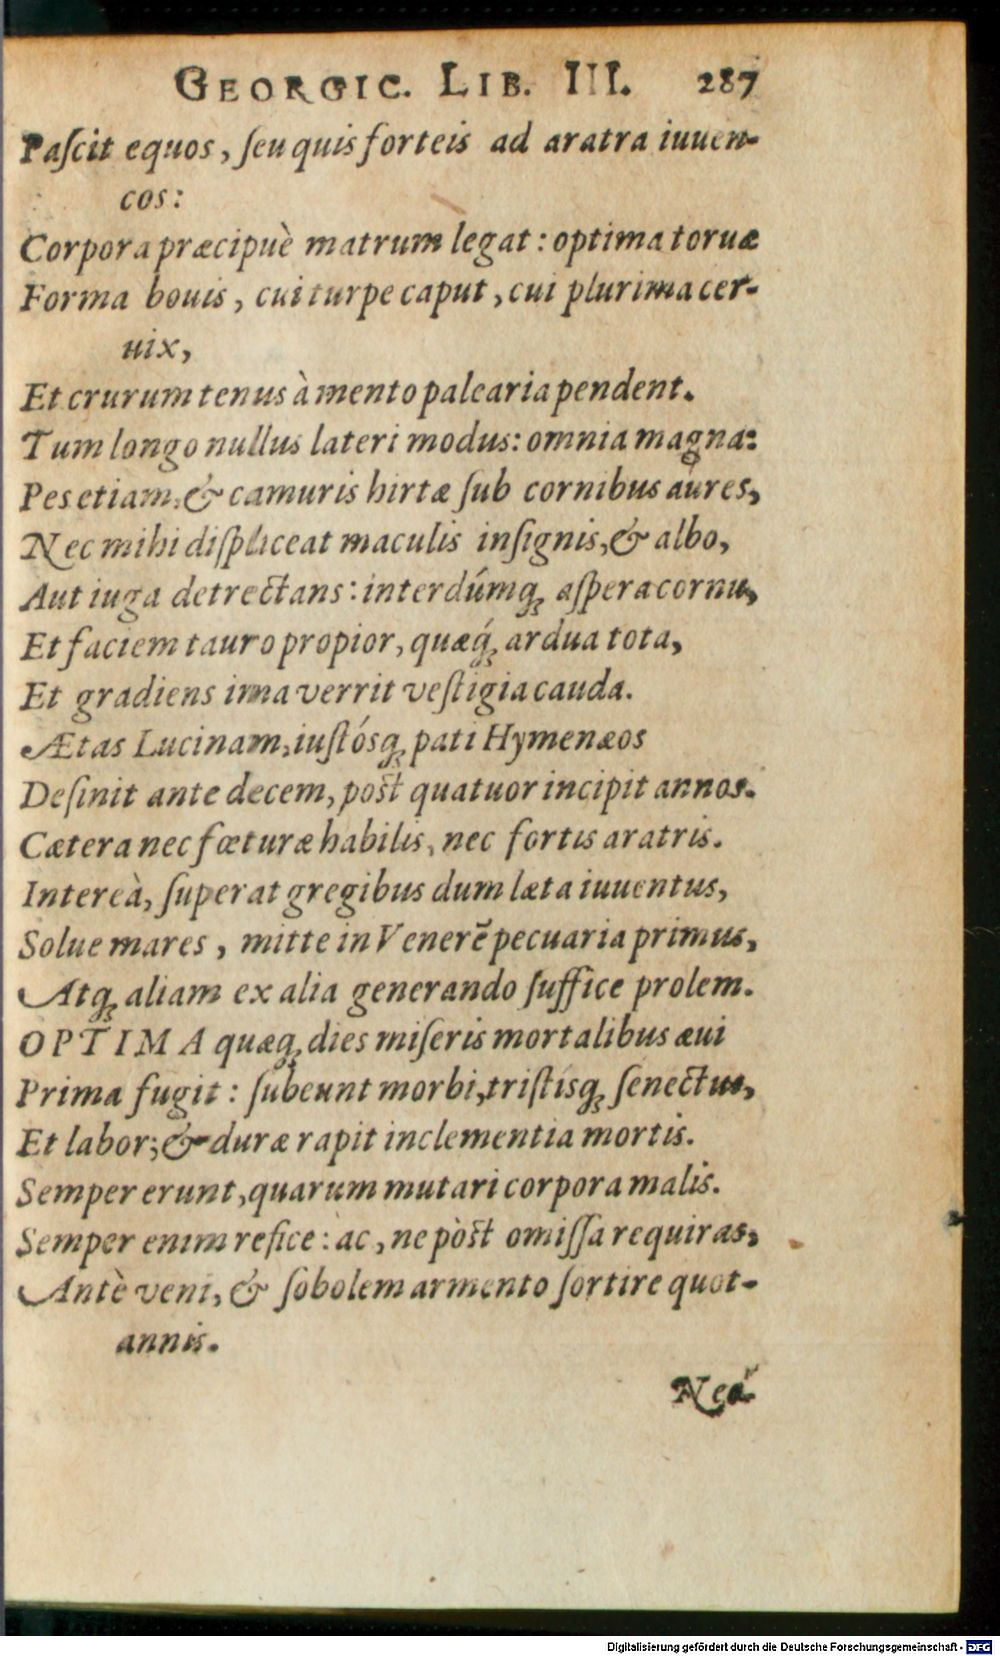 GEORGIC. LIB. III. 287
Paſcit equos, ſeu quis forteis ad aratra iuuen-
cos:
Corpora præcipuè matrum legat: optima toruæ
Forma bouis, cui turpe caput, cui plurima cer-
uix,
Et crurum tenus à mento palearia pendent.
Tum longo nullus lateri modus: omnia magna:
Pes etiam, & camuris hirtæ ſub cornibus aures,
Nec mihi diſpliceat maculis inſignis, & albo,
Aut iuga detrectans: interdúmq; aſpera cornu,
Et faciem tauro propior, quæq́; ardua tota,
Et gradiens ima verrit veſtigia cauda.
Ætas Lucinam, iuſtósq; pati Hymenæos
Deſinit ante decem, poſt quatuor incipit annos.
Cætera nec fœturæ habilis, nec fortis aratris.
Intereà, ſuperat gregibus dum læta iuuentus,
Solue mares, mitte in Venerē pecuaria primus,
Atq; aliam ex alia generando ſuffice prolem.
OPTIMA quæq; dies miſeris mortalibus æui
Prima fugit: ſubeunt morbi, triſtisq; ſenectus,
Et labor; & duræ rapit inclementia mortis.
Semper erunt, quarum mutari corpora malis.
Semper enim refice: ac, ne pòſt omiſſa requiras,
Antè veni, & ſobolem armento ſortire quot-
annis.
Digitalisierung gefördert durch die Deutsche Forschungsgemeinschaft - DFG